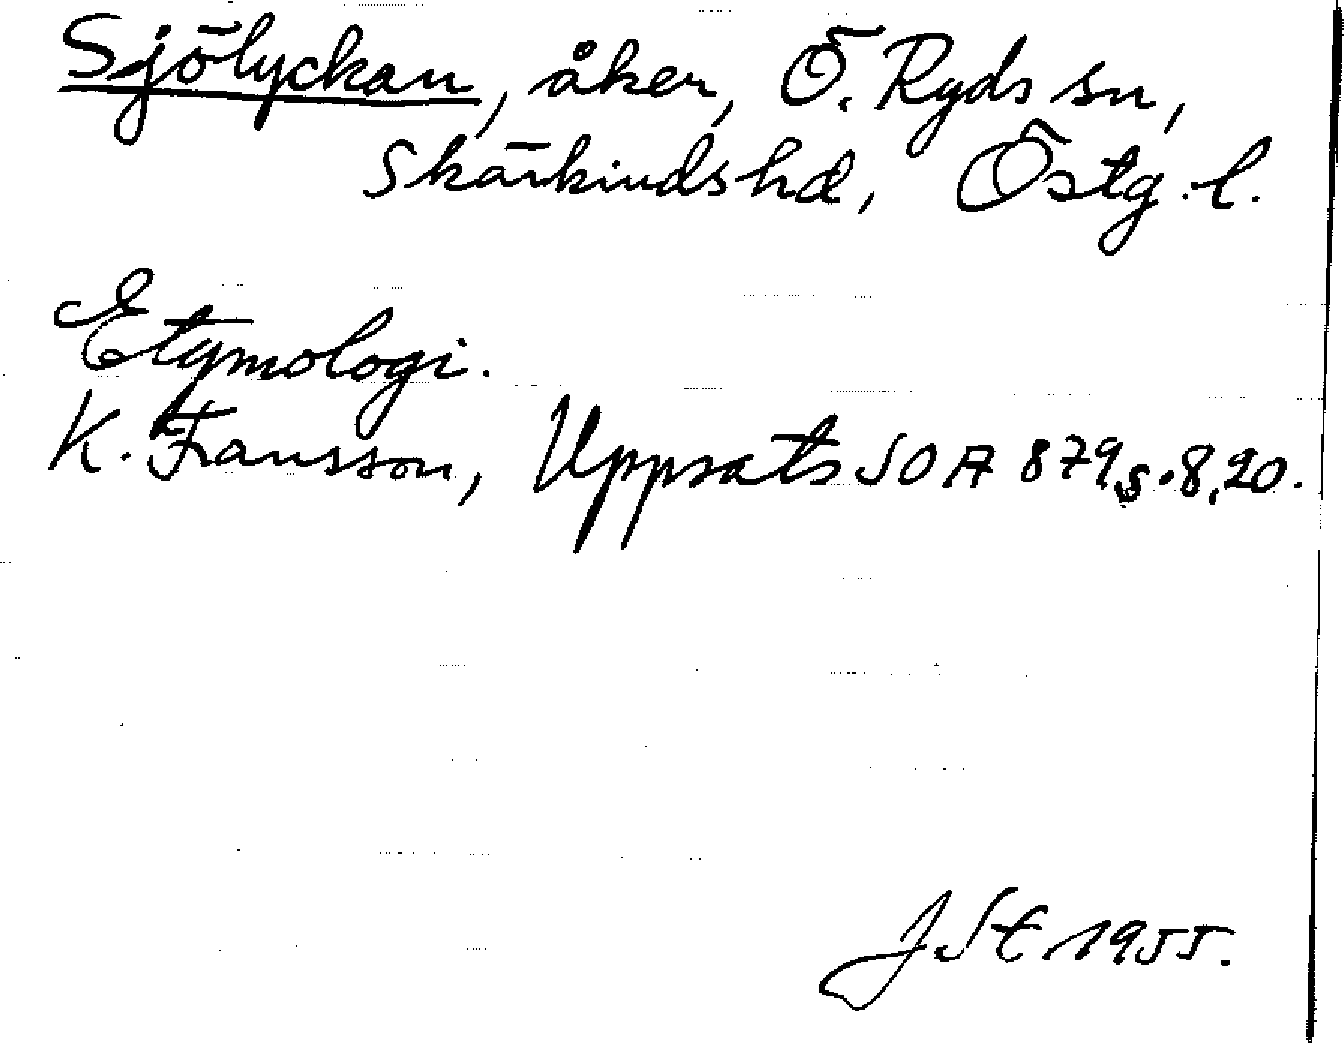 Sjölyckan, åker, Ö. Ryds sn,
Skärkinds hd, Östg. l.
Etymologi.
K. Fransson, Uppsats SOA 879, s. 8, 20.
J St 1955.